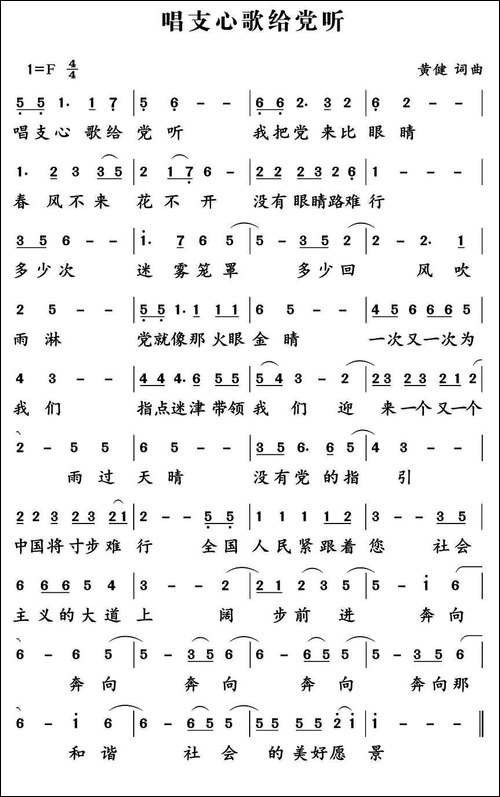 唱支心歌给党听
1=F 4/4 黄健 词曲
5 5 1· 1 7 | 5 6 - - | 6 6 2· 3 2 | 6 2 - - |
唱支心 歌给 党 听 我把党 来比 眼 睛
1· 2 3 3 5 | 2 1 7 6 - | 2 2 2 3 2 6 | 1 - - - |
春 风 不 来 花 不 开 没有 眼睛路难 行
3 5 6 6· - | 1· 7 6 5 | 5 - 3 5 2 | 2 - 2· 1 |
多 少 次 迷 雾 笼 罩 多 少 回 风 吹
2 5 - - | 5 5 1· 1 1 1 | 6 5 - - | 4 5 6 6 6 5 |
雨 淋 党就像那 火眼 金 睛 一次又一次为
4 3 - - | 4 4 4· 6 5 5 | 5 4 3 - 2 | 2 3 2 3 2 1 2 |
我 们 指点迷津 带领 我 们 迎 来一个又一个
2 - 5 5 | 6 5 - - | 3 5 6· 6 5 | 4 3 - - |
雨 过 天 晴 没有党 的指 引
2 2 3 2 3 2 1 | 2 - - 5 5 | 1 1 1 1 2 | 3 - - 3 5 |
中国将寸步难 行 全国 人民紧跟着 您 社会
6 6 6 5 4 | 3 - - 2 | 2 1 2 3 5 | 5 - 1 6 |
主义的大道 上 阔 步前 进 奔向
6 - 6 5 | 5 - 3 5 6 | 6 - 6 5 5 | 5 - 3 5 6 |
奔 向 奔 向 奔 向 奔向那
6 - 1 6 | 6 - 6 5 5 | 5 5 5 5 2 1 | 1 - - - |
和 谐 社 会 的 美好愿 景